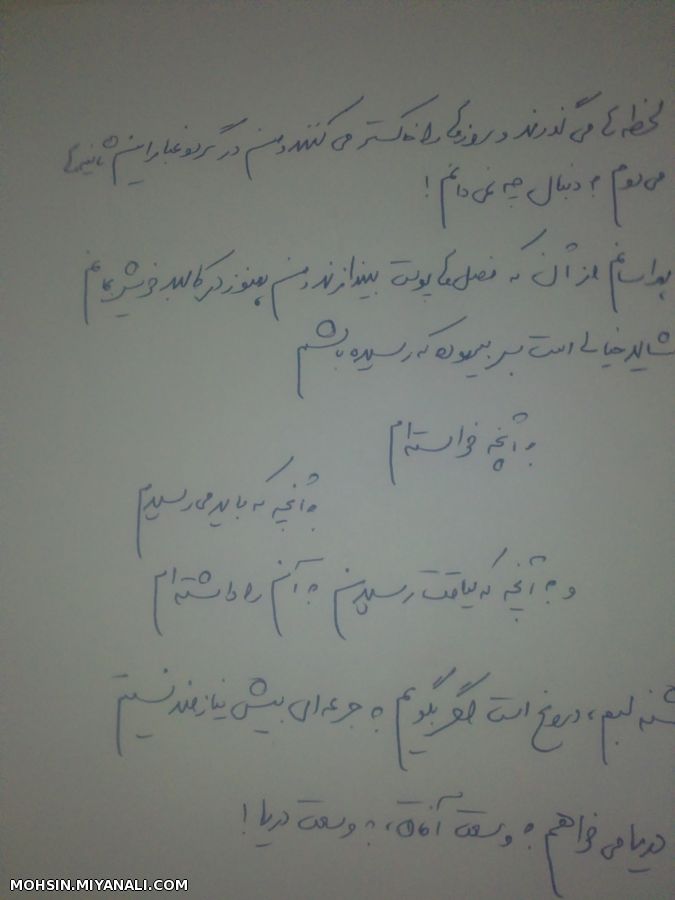 لحظه ها می گذرند و روزها را خاکستر می کنند و من در گرد و غبار این ثانیه ها
می دوم به دنبال چه نمی دانم!
هراسانم از آن که فصل ها پوست بیندازند و من هنوز در کالبد خویش بمانم
شاید خیالی است بس بیهوده که رسیده باشم
به آنچه خواسته ام
به آنچه که باید می رسیدم
و به آنچه که لیاقت رسیدن به آن را داشته ام
تشنه لبم، دروغ است اگر بگویم به جرعه ای بیش نیازمند نیستم
دریا می خواهم به وسعت آفتاب، به وسعت دریا!
MOHSIN.MIYANALI.COM